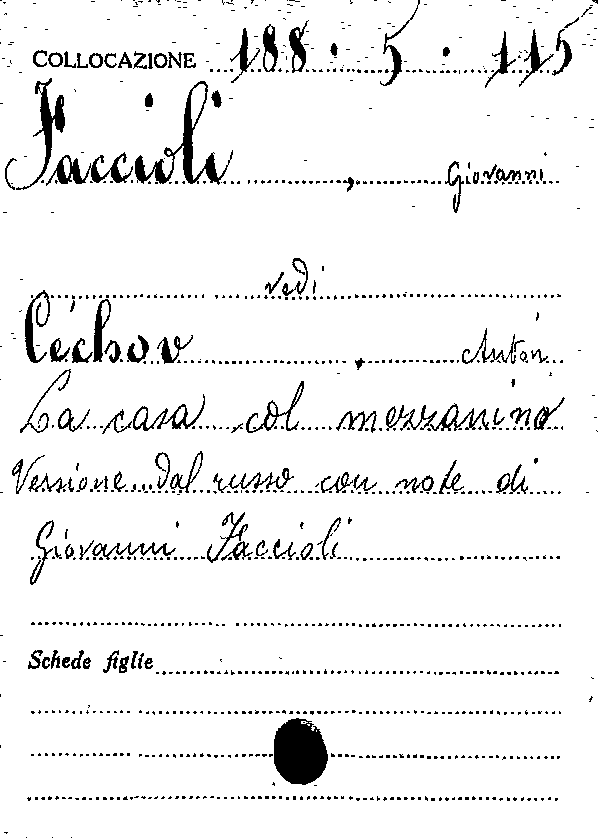 COLLOCAZIONE 188 . 5 . 115
Faccioli , Giovanni
vedi
Céchov , Antón
La casa col mezzanino
Versione dal russo con note di
Giovanni Faccioli
Schede figlie